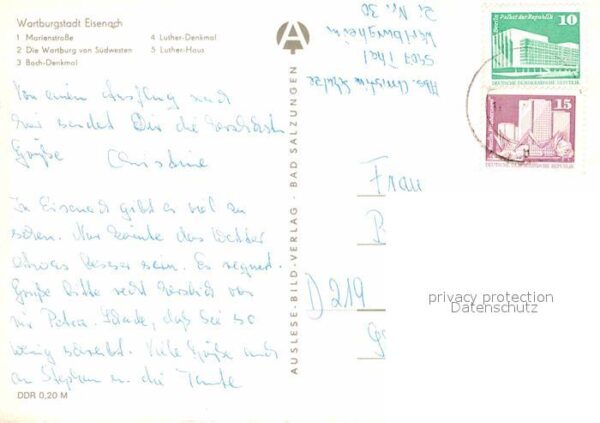 Wartburgstadt Eisenach
1 Marienstraße
2 Die Wartburg von Südwesten
3 Bach-Denkmal
4 Luther-Denkmal
5 Luther-Haus
Von einem Ausflug nach
hier sendet Dir die herzlichsten
Grüße Christine
In Eisenach gibt es viel zu
sehen. Nur könnte das Wetter
etwas besser sein. Es regnet.
Grüße bitte recht herzlich von
mir Petra. Schade, daß sie so
wenig schreibt. Viele Grüße auch
an Stephan u. die Tante
DDR 0,20 M
AUSLESE-BILD-VERLAG · BAD SALZUNGEN
A
Abs. Christine
5907 Thal
Z. Nr. 30
Palast der Republik
10
DEUTSCHE DEMOKRATISCHE REPUBLIK
15
DEUTSCHE DEMOKRATISCHE REPUBLIK
Frau
D 219
privacy protection
Datenschutz